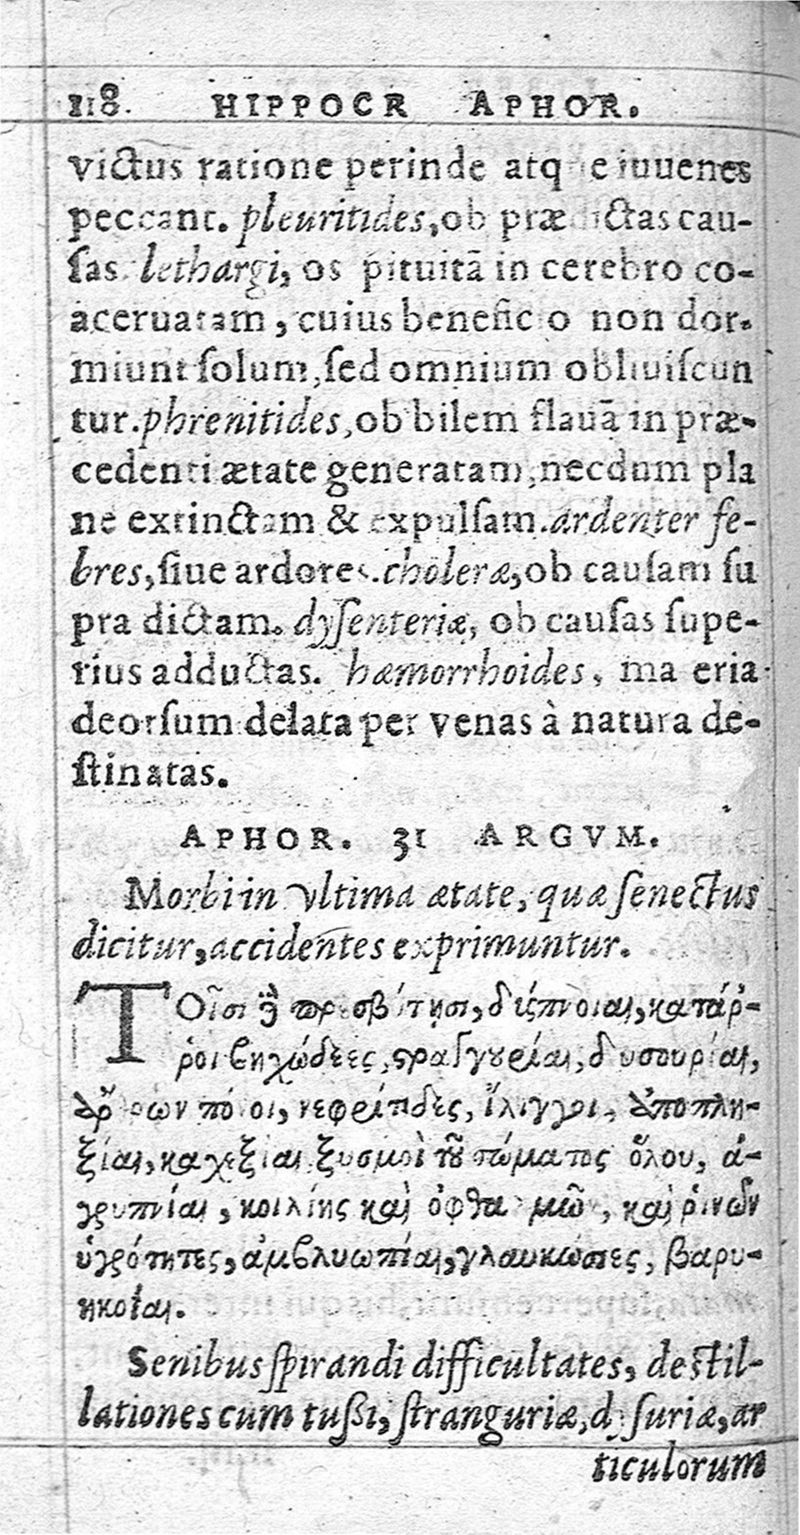 118. HIPPOCR APHOR.
victus ratione perinde atque iuuenes
peccant. pleuritides, ob prædictas cau-
sas. lethargi, ob pituitā in cerebro co-
aceruatam, cuius beneficio non dor-
miunt solum, sed omnium obliuiscun
tur. phrenitides, ob bilem flauā in præ-
cedenti ætate generatam, necdum pla
ne extinctam & expulsam. ardentes fe-
bres, siue ardores. choleræ, ob causam su
pra dictam. dysenteriæ, ob causas supe-
rius adductas. hæmorrhoides, materia
deorsum delata per venas à natura de-
stinatas.
APHOR. 31 ARGVM.
Morbi in vltima ætate, quæ senectus
dicitur, accidentes exprimuntur.
Τοῖσι ἢ πρεσβύτῃσι, δύσπνοιαι, κατάρ-
ροι βηχώδεες, στραγγουρίαι, δυσουρίαι,
ἄρθρων πόνοι, νεφρίτιδες, ἴλιγγοι, ἀποπλη-
ξίαι, καχεξίαι ξυσμοὶ τοῦ σώματος ὅλου, ἀ-
γρυπνίαι, κοιλίης καὶ ὀφθαλμῶν, καὶ ῥινῶν
ὑγρότητες, ἀμβλυωπίαι, γλαυκώσιες, βαρυ-
ηκοΐαι.
Senibus spirandi difficultates, destil-
lationes cum tussi, stranguriæ, dysuriæ, ar
ticulorum